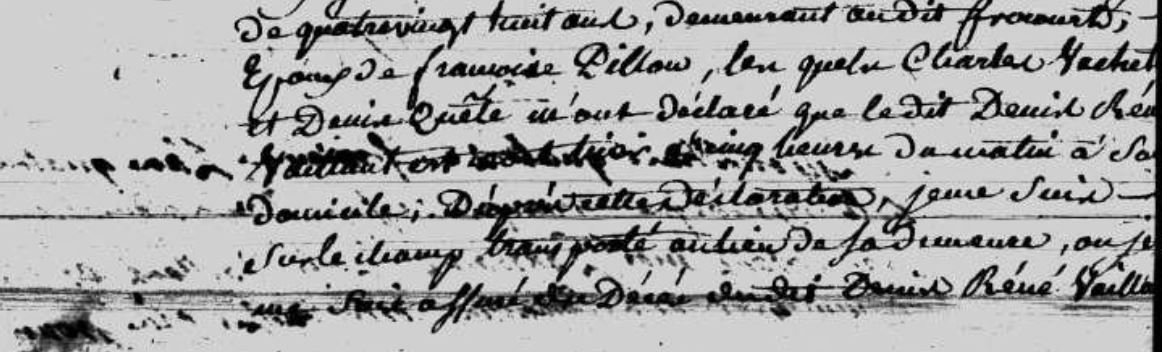 de quatrevingt huit ans, demeurant audit frocourt,
Epoux de francoise Pillon, lesquels Charles Vachet
et Denis Quêté m'ont déclaré que ledit Denis Réné
Vaillant est mort hier à cinq heures du matin à son
domicile; D'après cette déclaration, je me suis
sur le champ transporté au lieu de sa demeure, ou je
me suis assuré du Décès dudit Denis Réné Vailla